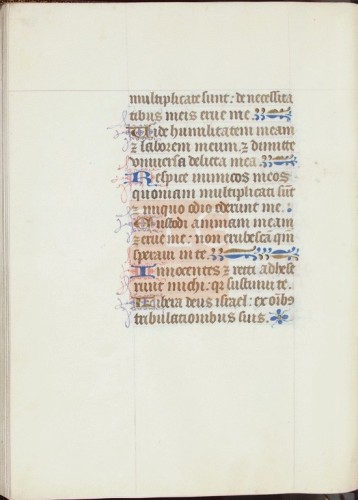 multiplicate sunt: de necessita
tibus meis erue me.
Vide humilitatem meam
⁊ laborem meum. ⁊ dimitte
vniuersa delicta mea.
Respice inimicos meos
quoniam multiplicati sūt
⁊ iniquo odio oderunt me.
Custodi animam meam
⁊ erue me: non erubescā qm̄
speraui in te.
Innocentes ⁊ recti adhese
runt michi: qr sustinui te.
Libera deus israel: ex oībꝰ
tribulacionibus suis.